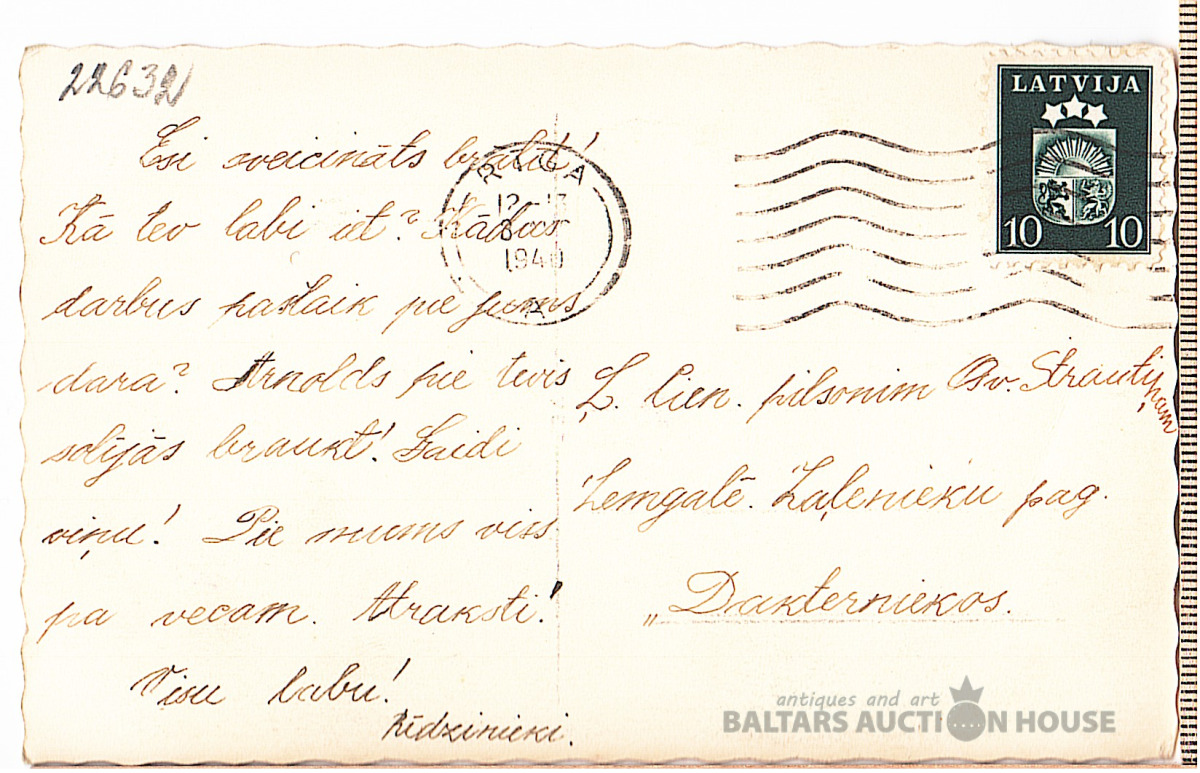 22632
Esi sveicināts brālīt!
Kā tev labi iet? Kādus
darbus paslaik pie jums
dara? Arnolds pie tevis
solījās braukt! Gaidi
viņu! Pie mums viss
pa vecam. Atraksti!
Visu labu!
Rīdzinieki.
RĪGA
12-13
1940
LATVIJA
10 10
Ļ. Cien. pilsonim Osv. Strautiņam
Zemgalē. Zaļenieku pag.
„Dakterniekos.
antiques and art
BALTARS AUCTION HOUSE